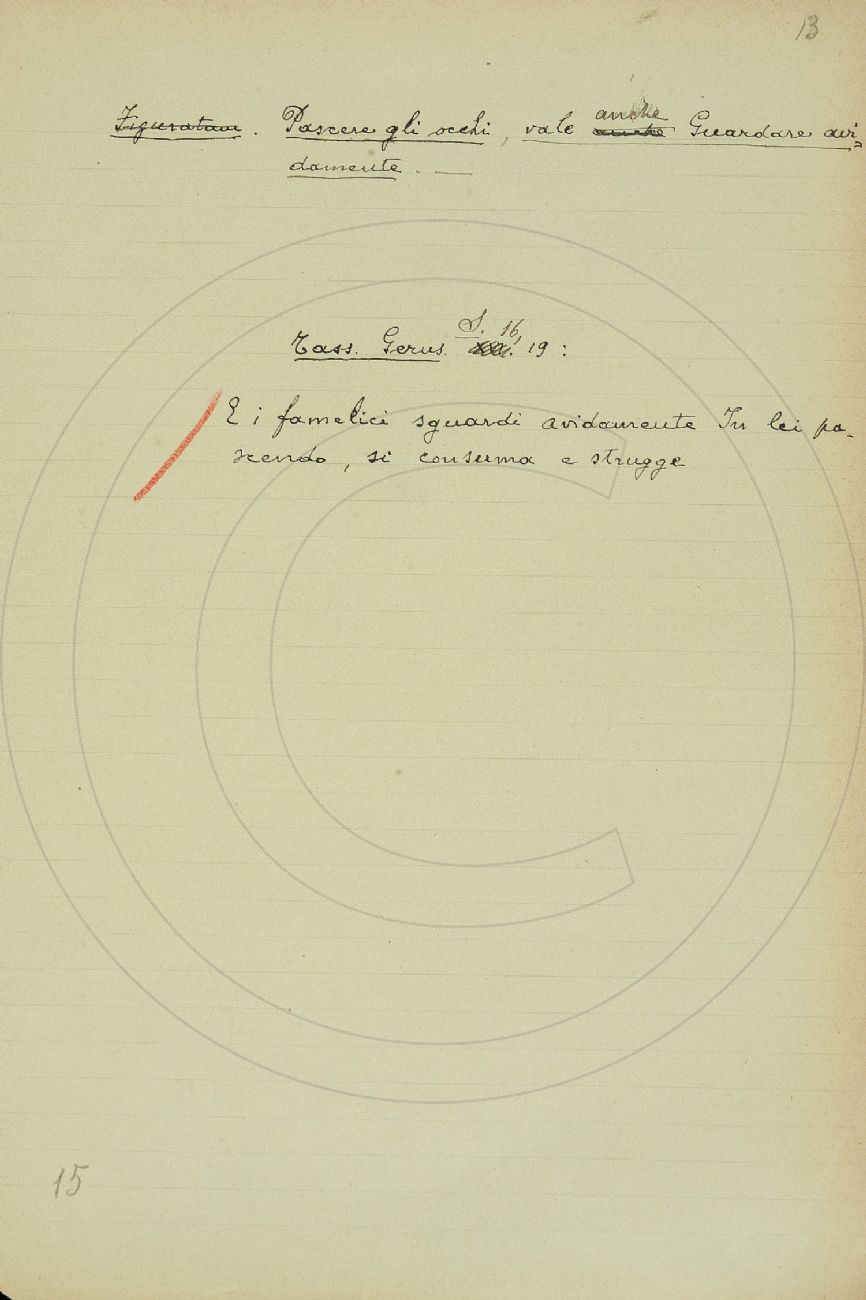 13
Figuratam. Pascere gli occhi, vale anche Guardare avi=
damente. —
Tass. Gerus. S. 16, 19:
E i famelici sguardi avidamente In lei pa-
scendo, si consuma e strugge
15